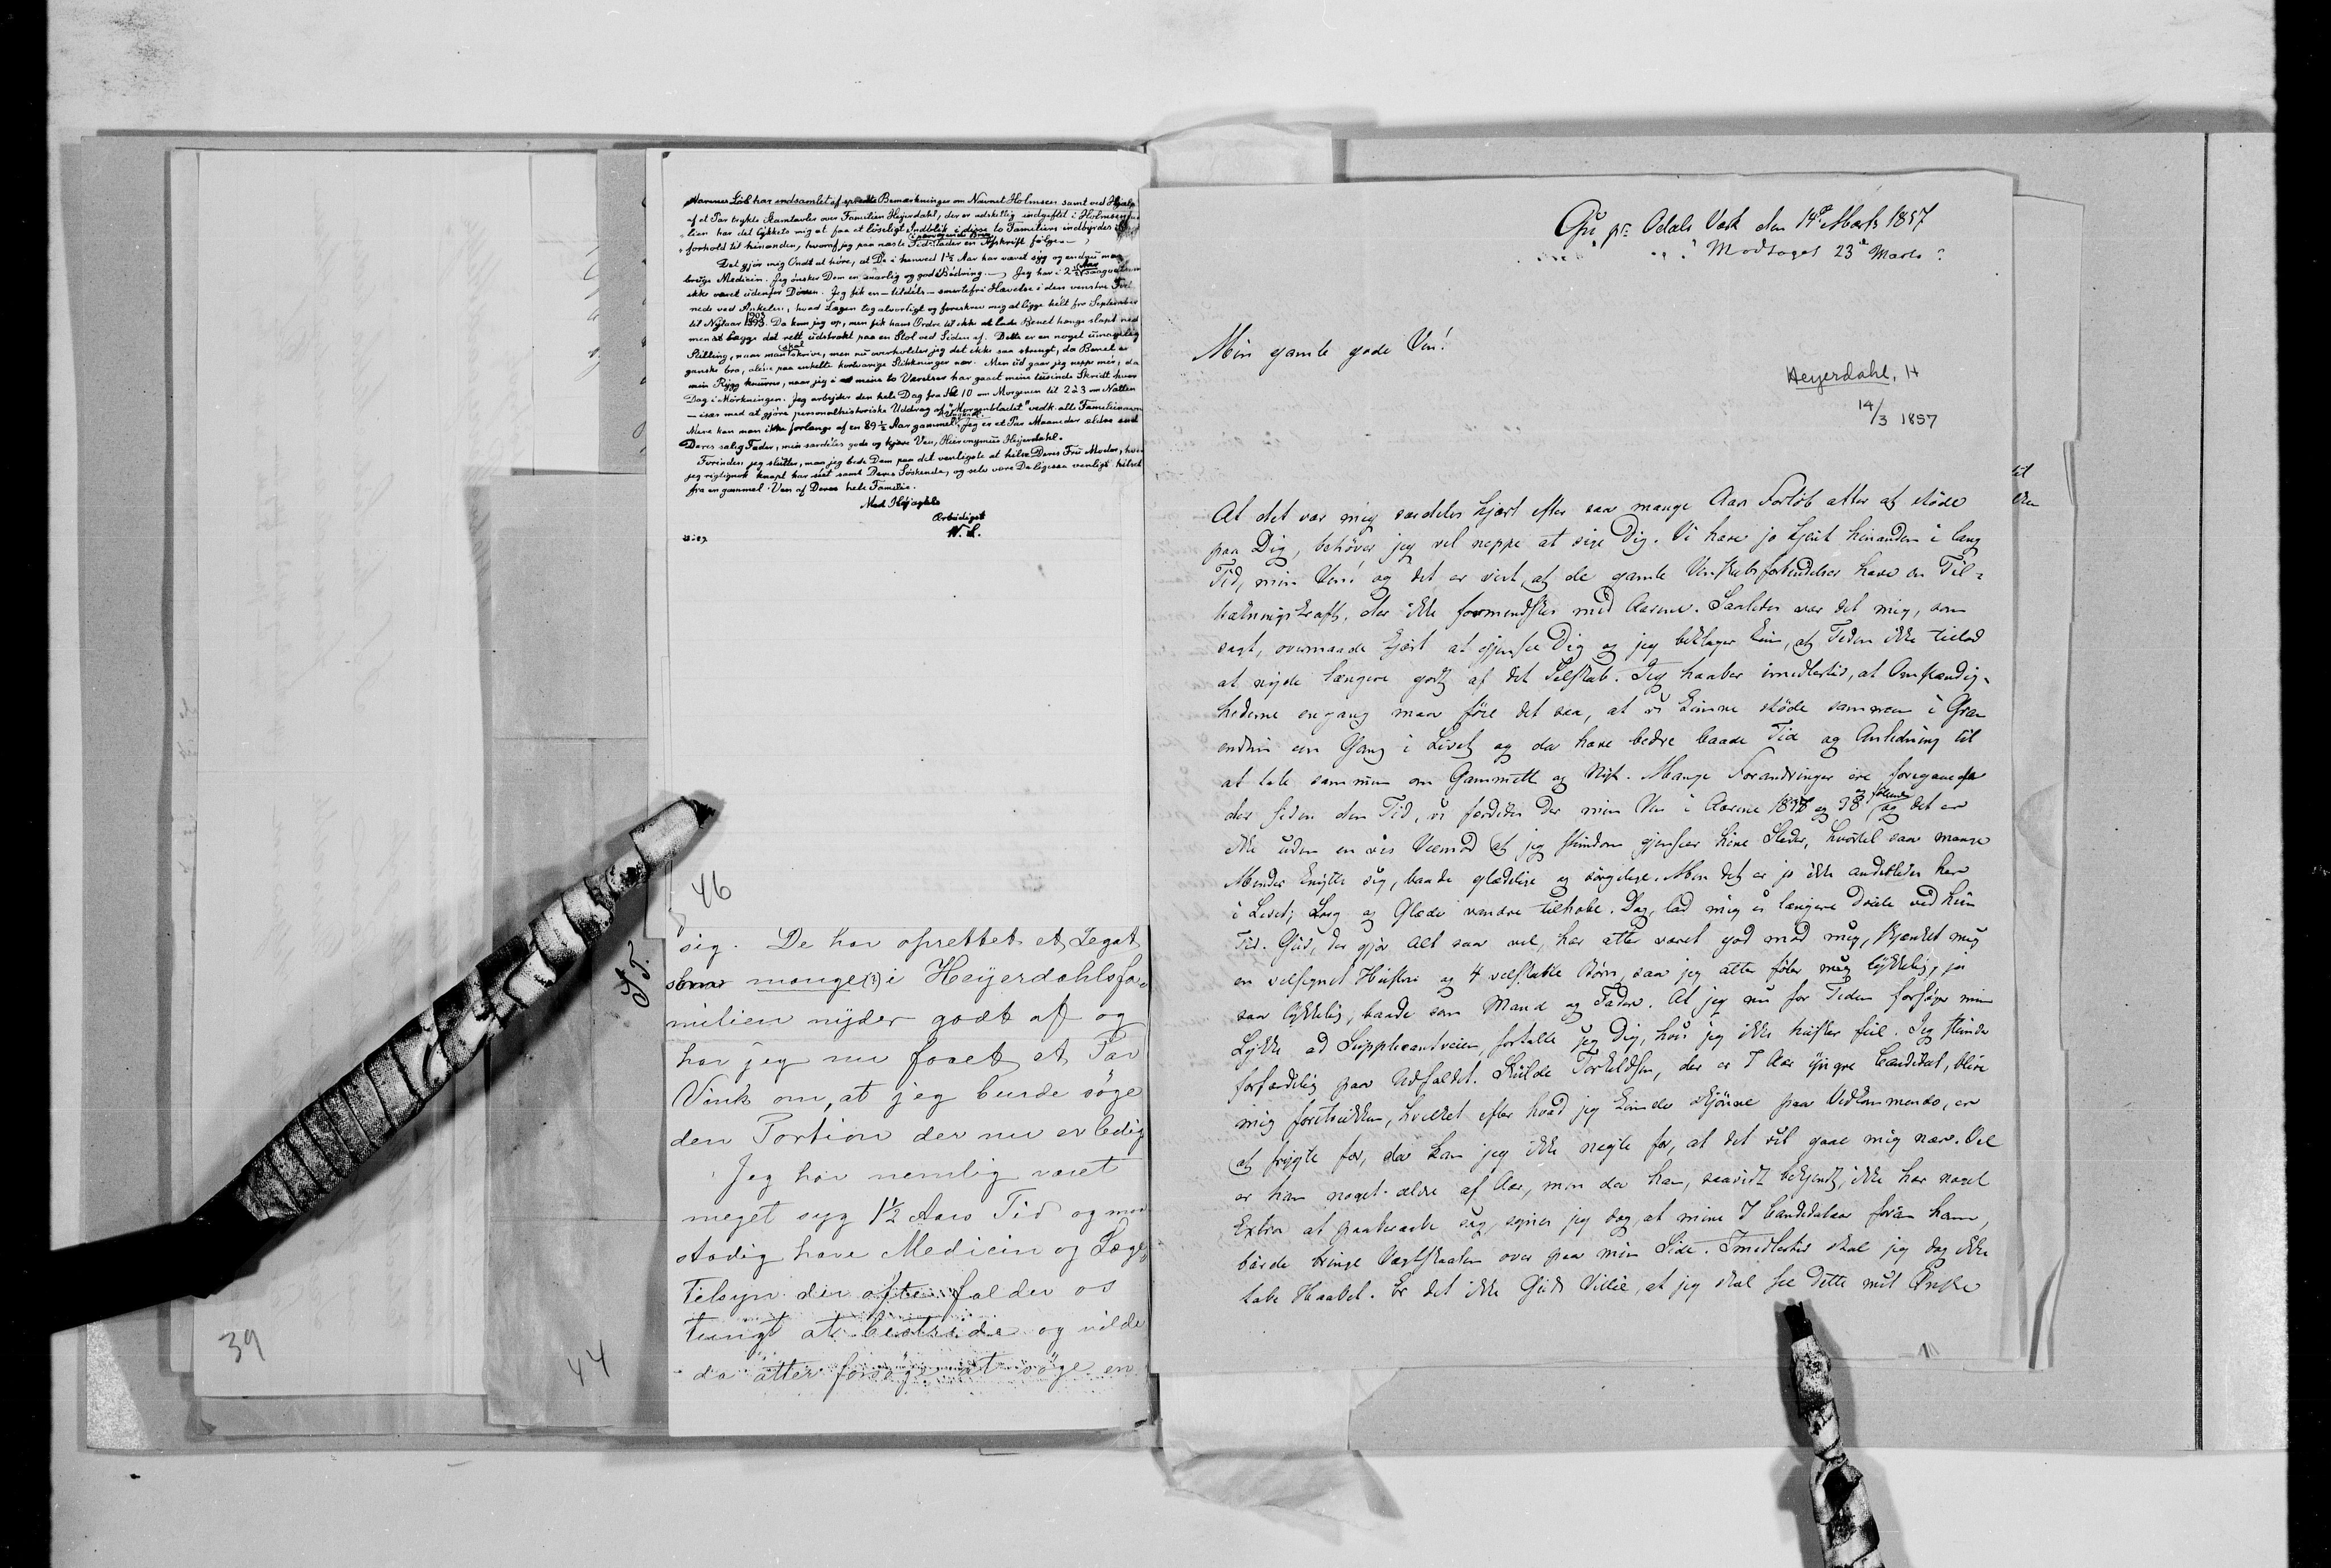 Aarenes Løb har indsamlet af spredte Bemærkninger om Navnet Holmsen samt ved Hjælp
af et Par trykte Stamtavler over Familien Heijerdahl, der er adskillig indgiftet i
lien har det lykkets mig at faa et løseligt Indblik i disse to Familiers indbyrdes
forhold til hinanden, hvoraf jeg paa næste Side en Afskrift følger
Det gjør mig Ondt at høre, at De i henved 1½ Aar har været syg og endnu maa
bruge Medicin. Jeg ønsker Dem en snarlig og god Bedring. Jeg har i 2
ikke været udenfor Døren. Jeg fik en – tildels – smertefri Hævelse i den venstre
nede ved Ankelen, hvad Lægen tog alvorligt og foreskrev mig at ligge helt fra September
til Nytaar. Da kom jeg op, men fik hans Ordre til ikke at lade Benet hænge slapt ned
men at lægge det rett udstrakt paa en Stol ved Siden af. Dette er en noget umagelig
Stilling, naar man skal skrive, men nu overholder jeg det ikke saa strengt, da Benet er
ganske bra, alene paa enkelte kortvarige Stikkninger nær. Men ud gaar jeg neppe mer, da
min Rygg knurrer, naar jeg i mine to Værelser har gaaet mine tusinde Skridt hver
Dag i Mørkningen. Jeg arbejder den hele Dag fra Kl 10 om Morgenen til 2 à 3 om Natten
– især med at gjøre personalhistoriske Uddrag af "Morgenbladet" vedk. alle Familienavne
Mere kan man ikke forlange af en 89½ Aar gammel. Jeg er et Par Maaneder ældre end
Deres salig Fader, min særdeles gode og kjære Ven, Hieronymus Heijerdahl.
Forinden jeg slutter, maa jeg bede Dem paa det venligste at hilse Deres Fru Moder,
jeg rigtignok knapt har seet samt Deres Søskende, og selv være De ligesaa venligt hilset
fra en gammel Ven af Deres hele Familie.
Med Højagtelse
Ærbødigst
46
sig. De har oprettet et Legat
som mange(?) i Heyerdahlsfa-
milien nyder godt af og
har jeg nu faaet et Par
Vink om, at jeg burde søge
den Portion der nu er ledig
Jeg har nemlig været
meget syg 1½ Aars Tid og maa
stadig have Medicin og Læge-
tilsyn der ofte falder os
tungt at bestride og vilde
da atter forsøge at søge en
S.T.
39
44
Gu pr. Odals Værk den 14de Marts 1857
Modtaget 23de Marts
Min gamle gode Ven!
Heyerdahl, H
14/3 1857
At det var mig særdeles kjært efter saa mange Aars Forløb atter at støde
paa Dig, behøver jeg vel neppe at sige Dig. Vi have jo kjent hinanden i lang
Tid, min Ven! og det er vist, at de gamle Venskabsforbindelser have en Til-
trækningskraft, der ikke formindskes med Aarene. Saaledes var det mig, som
sagt, overmaade kjært at gjensee Dig og jeg beklager kun, at Tiden ikke tillod
at nyde længere godt af det Selskab. Jeg haaber imidlertid, at Omstændig-
hederne engang maa føie det saa, at vi kunne støde sammen i Gran
endnu en Gang i Livet og da have bedre baade Tid og Anledning til
at tale sammen om Gammelt og Nyt. Mange Forandringer ere foregaaede
der siden den Tid, vi færdedes der min Ven i Aarene 1837 og 38 og følgende og det er
ikke uden en vis Veemod at jeg stundom gjenseer hine Steder, hvortil saa mange
Minder knytte sig, baade glædelige og sørgelige. Men det er jo ikke anderledes her
i Livet; Sorg og Glæde vandre tilhobe. Dog, lad mig ei længere dvæle ved hiin
Tid. Gud, der gjør Alt saa vel, har atter været god mod mig, skjænket mig
en velsignet Hustru og 4 velskabte Børn, saa jeg atter føler mig lykkelig, ja
saa lykkelig, baade som Mand og Fader. At jeg nu for Tiden forsøger min
Lykke ad Supplicantveien, fortalte jeg Dig, hvis jeg ikke husker feil. Jeg stunder
forfærdelig paa Udfaldet. Skulde Torkildsen, der er 7 Aar yngre Candidat, blive
mig foretrukken, hvilket efter hvad jeg kunde skjønne paa Vedkommende, er
at frygte for, da kan jeg ikke negte for, at det vil gaae mig nær. Vel
er han noget ældre af Aar, men da han, saavidt bekjendt, ikke har noget
Extra at paaberaabe sig, synes jeg dog, at mine 7 Candidataar foran ham,
burde bringe Vægtskaalen over paa min Side. Imidlertid skal jeg dog ikke
tabe Haabet. Er det ikke Guds Villie, at jeg skal see dette mit Ønske